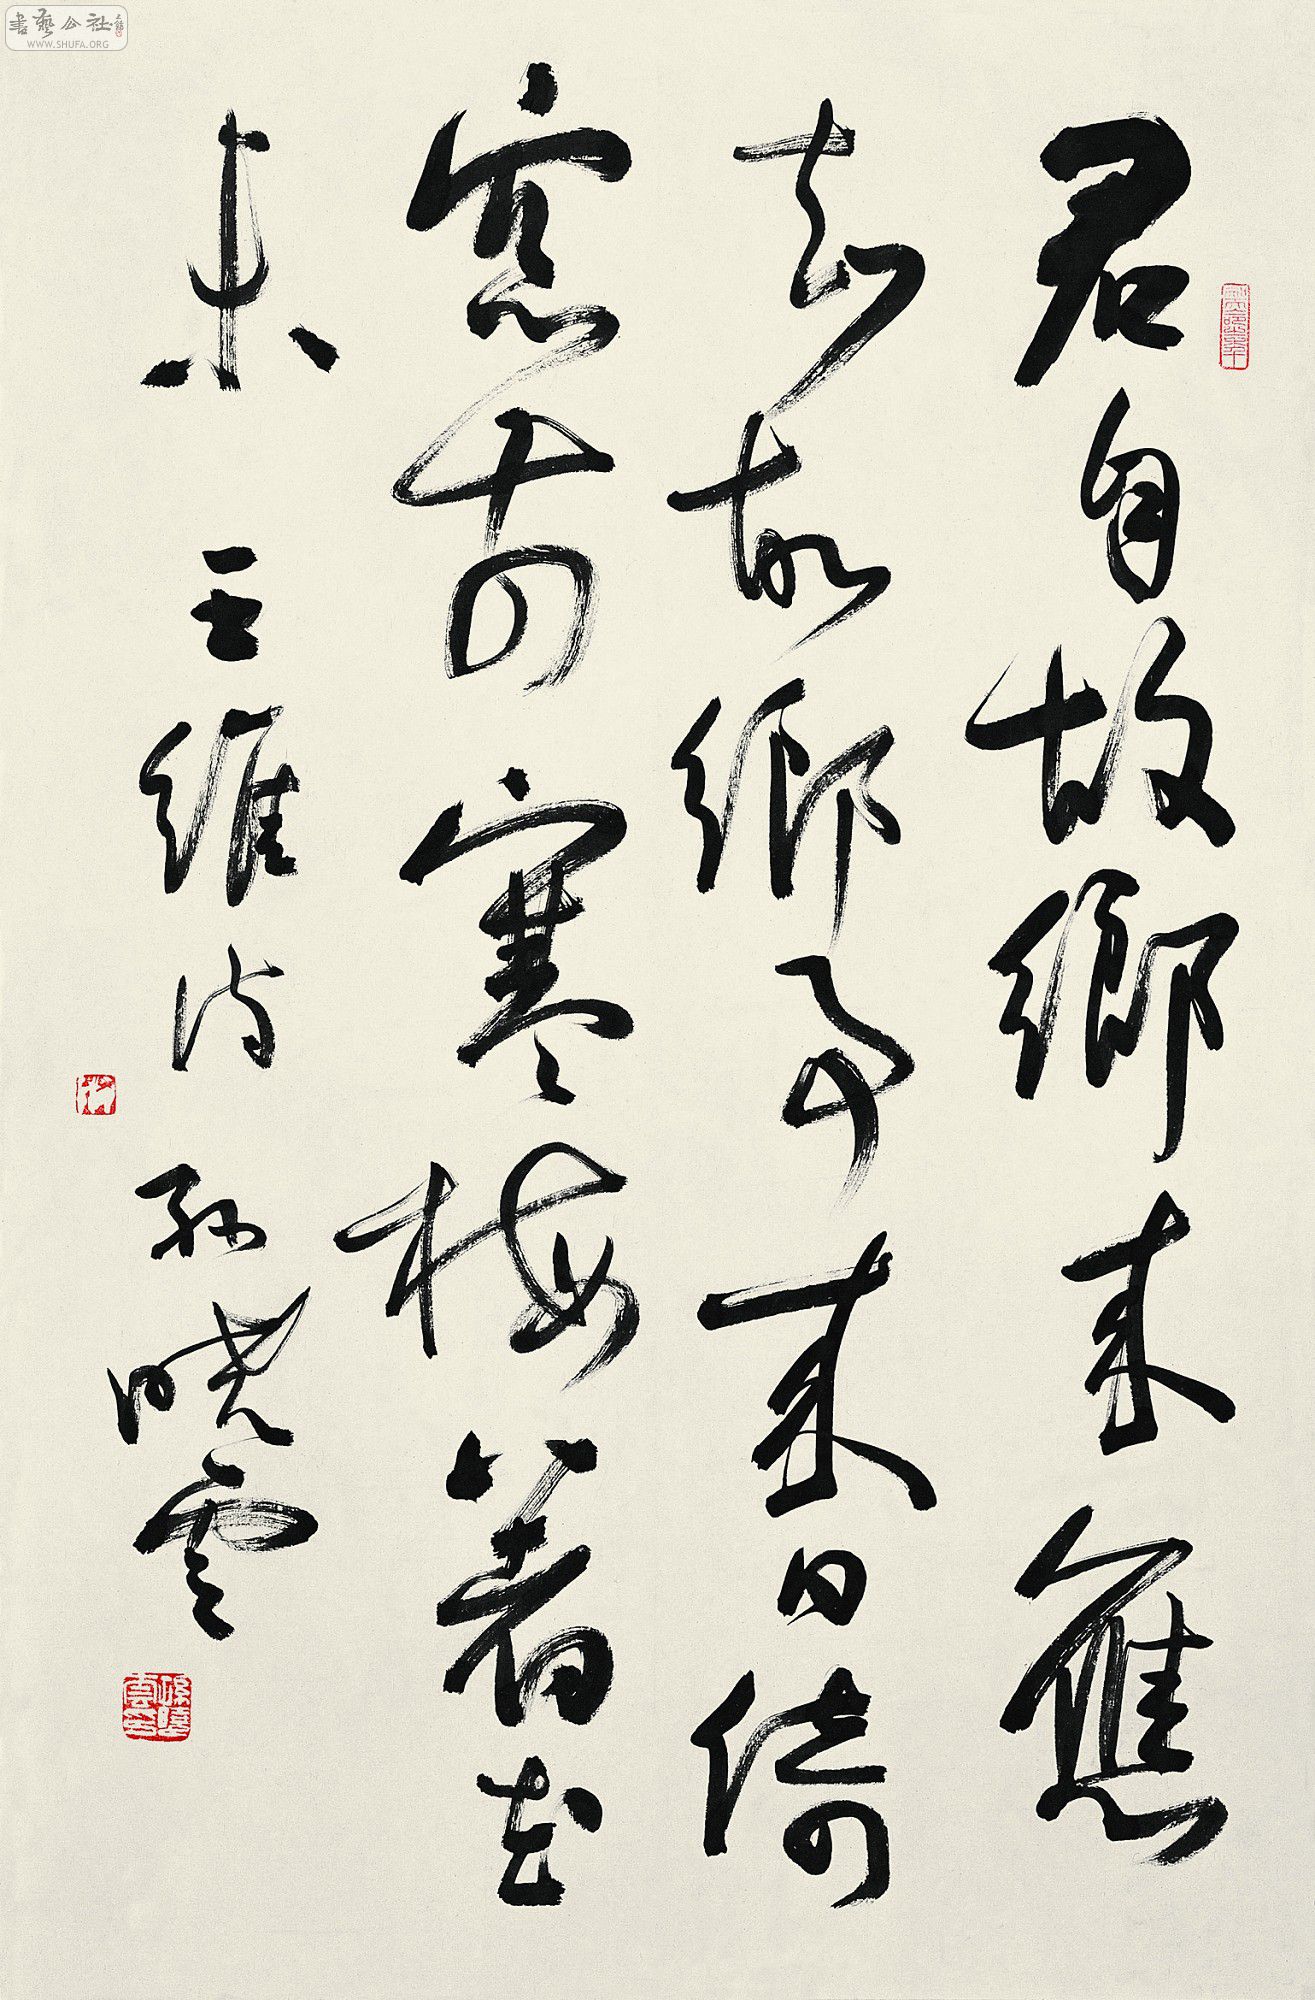 君自故鄉来應
知故鄉事来日綺
窓前寒梅著花
未 王維诗 孫晓雲
書藝公社
WWW.SHUFA.ORG